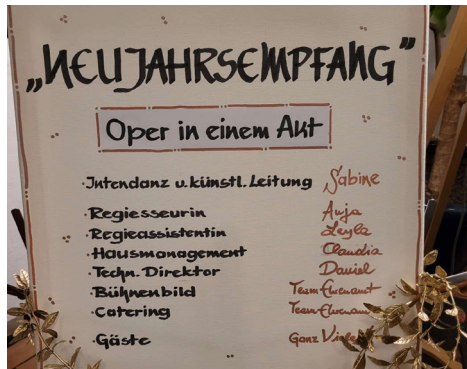 „NEUJAHRSEMPFANG"
Oper in einem Akt
·Intendanz u. künstl. Leitung Sabine
·Regiesseurin Anja
·Regieassistentin Leyla
·Hausmanagement Claudia
·Techn. Direktor Daniel
·Bühnenbild Team Ehrenamt
·Catering Team
·Gäste Ganz